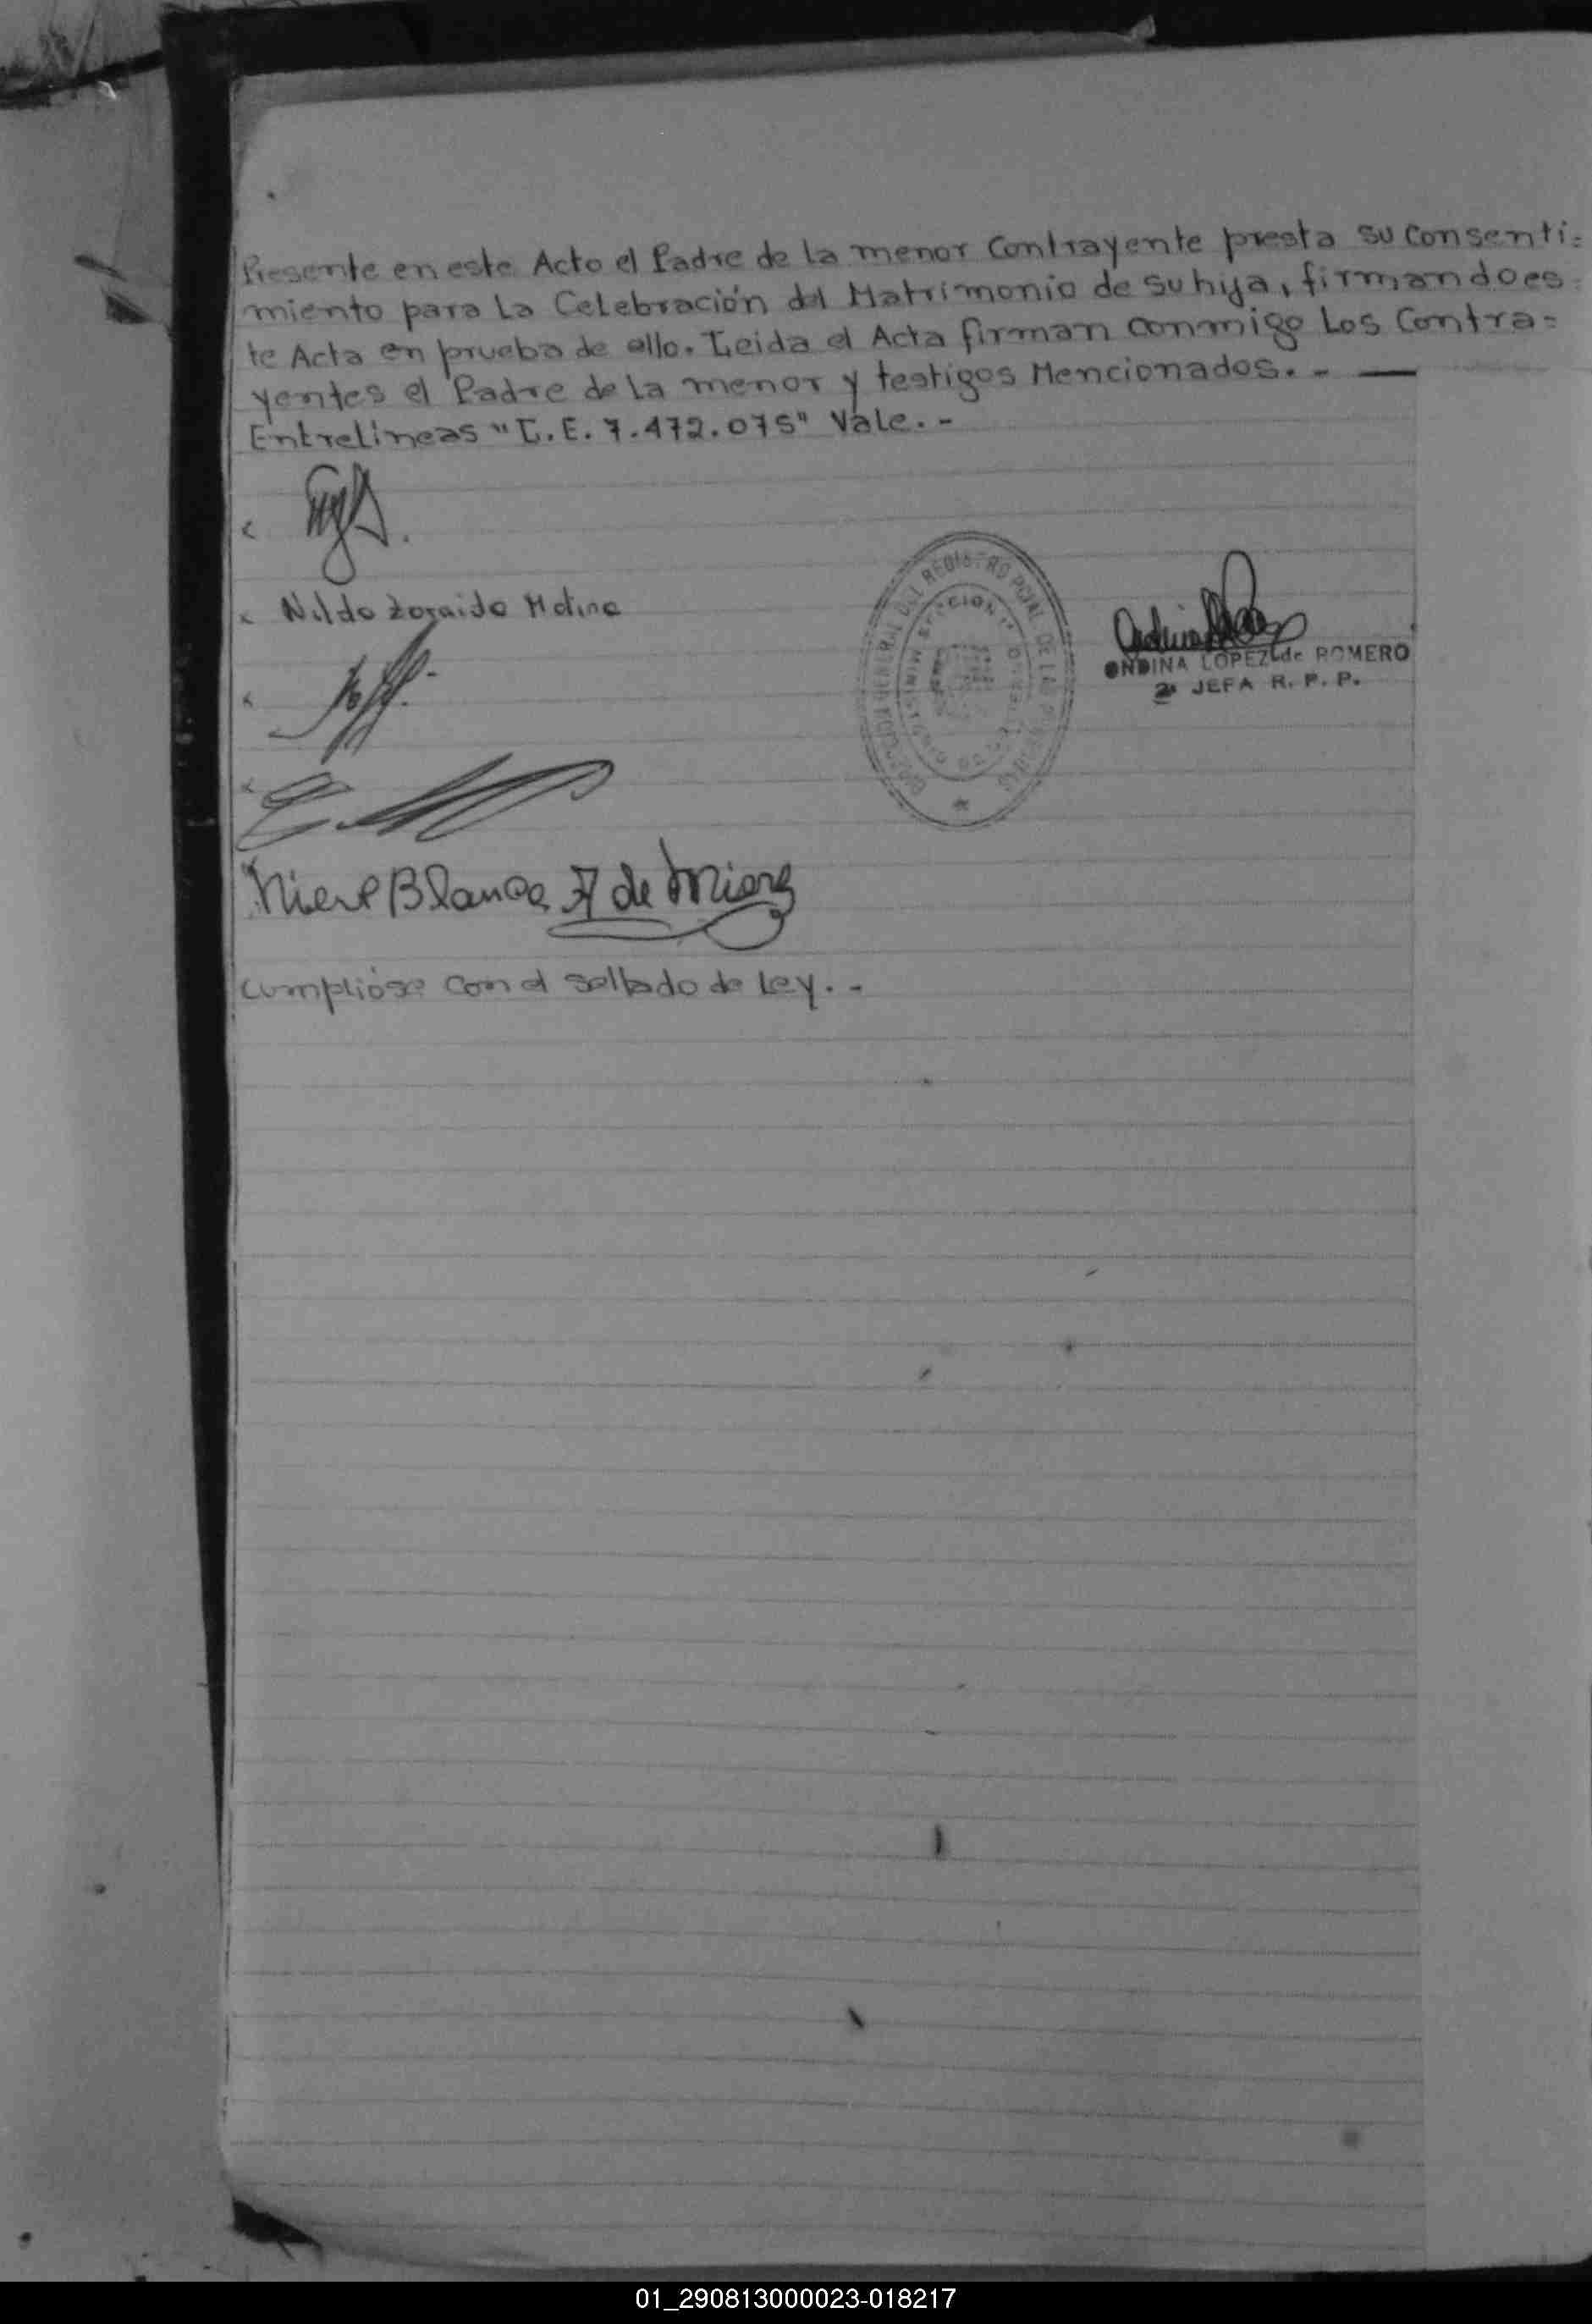 Presente en este Acto el Padre de la menor Contrayente presta su Consenti=
miento para La Celebración del Matrimonio de su hija, firmando es=
te Acta en prueba de ello. Leida el Acta firman conmigo Los Contra=
yentes el Padre de la menor y testigos Mencionados. -
Entrelíneas "L.E. 7.472.075" Vale. -
Nilda Zoraida Molina
ONDINA LOPEZ de ROMERO
2ª JEFA R. P. P.
Blanca A de
Cumplióse con el sellado de Ley. -
01_290813000023-018217